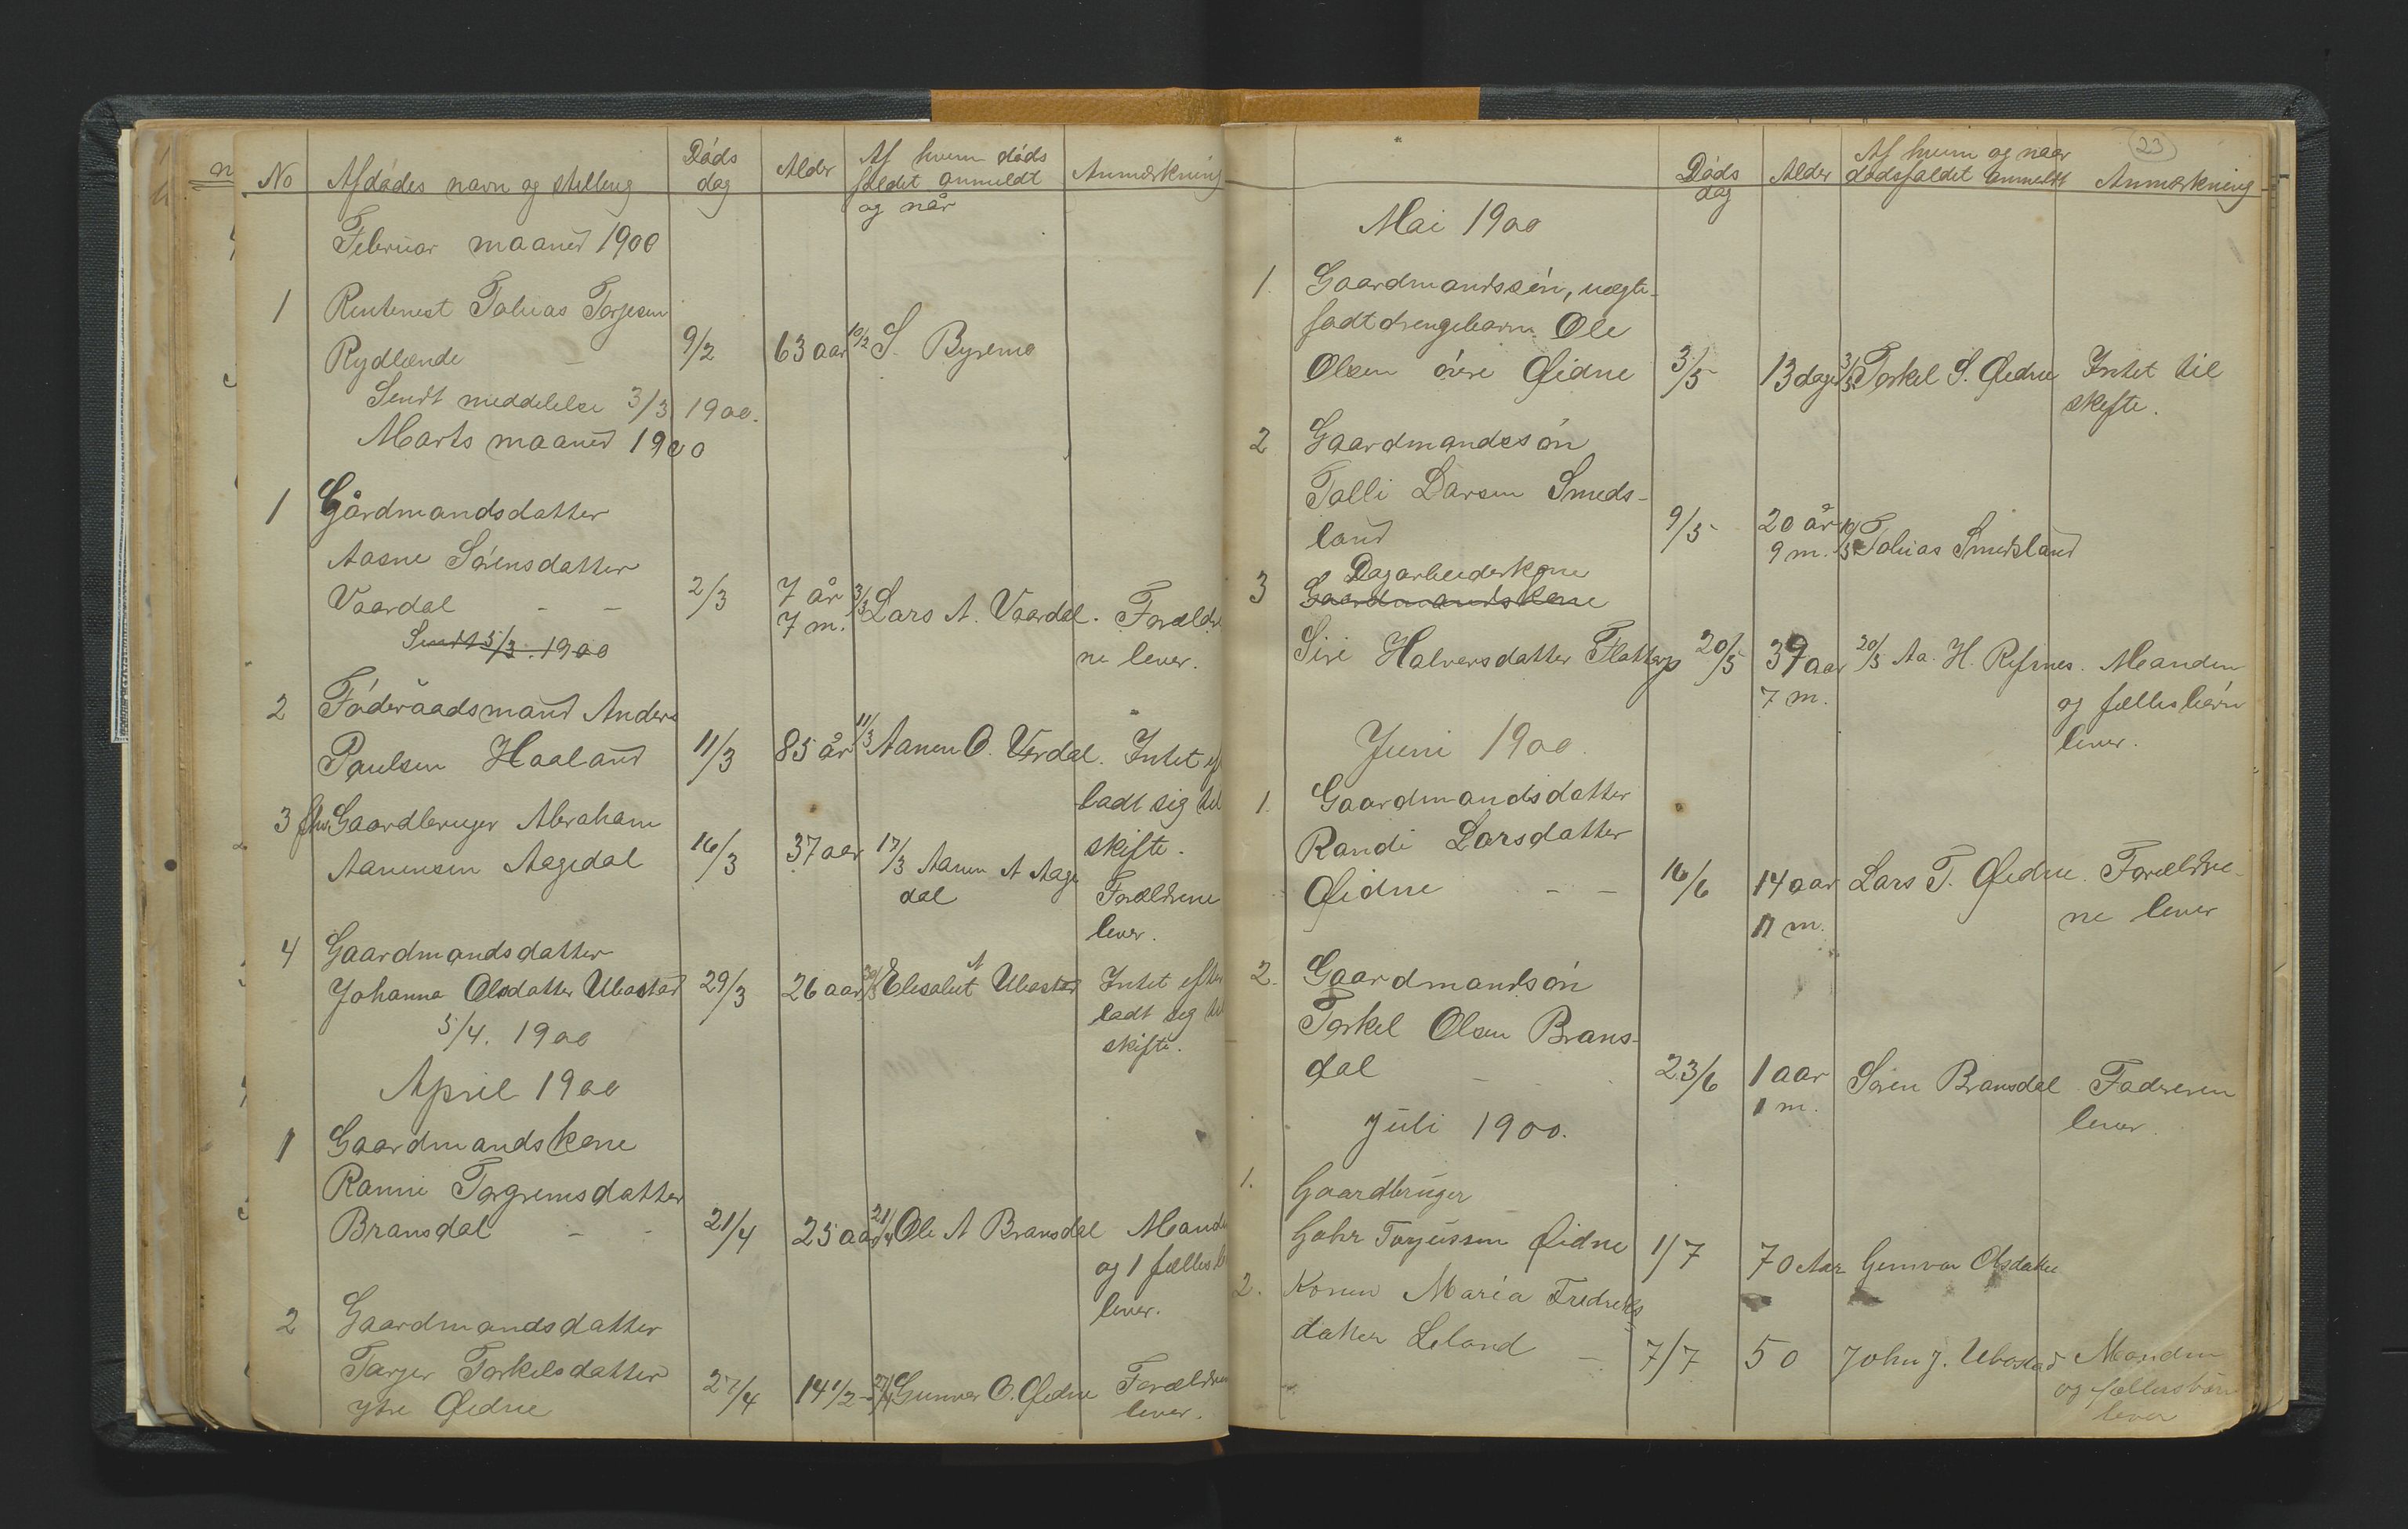 No Afdødes navn og stilling Døds dag Alder Af hvem døds faldet anmeldt og når Anmærkning
Februar maaned 1900
1 Rentenest Tobias Torjesen
Rydlende 9/2 63 aar 10/2 S. Byremo
Sendt meddelelse 3/3 1900.
Marts maaned 1900
1 Gårdmandsdatter
Aasne Sørensdatter
Vaardal - - 2/3 7 år 7 m. 3/3 Lars A. Vaardal. Forældre
Sendt 5/3. 1900 ne lever.
2 Føderaadsmand Anders
Paulsen Haaland 11/3 85 år 11/3 Aanen O. Verdal. Intet ef
ladt sig til
3 Gaardbruger Abraham skifte.
Aanensen Aagedal 16/3 37 aar 17/3 Aanen A Aage
dal Forældrene
lever.
4 Gaardmandsdatter
Johanna Olsdatter Ubostad 29/3 26 aar 30/3 Elisabet A Ubostad Intet efter
ladt sig til
5/4. 1900 skifte.
April 1900
1 Gaardmandskone
Ranni Torgrimsdatter
Bransdal - - 21/4 25 aar 21/4 Ole A Bransdal Mand
og 1 fælles b
lever.
2 Gaardmandsdatter
Tarjer Torkelsdatter
ytre Øidne 27/4 14 1/2 - 27/4 Gunvor O. Øidne Forældrene
lever.
23
Døds dag Alder Af hvem og naar dødsfaldet anmeldt Anmærkning
Mai 1900
1. Gaardmandssøn, uægte
født drengebarn Ole
Olsen øvre Øidne 3/5 13 dage 3/5 Torkel S. Øidne Intet til
skifte.
2 Gaardmandssøn
Tolli Larsen Smeds-
land 9/5 20 år 9 m. 10/5 Tobias Smedsland
3 Dagarbeiderkone
Gaardmandskone
Siri Halvorsdatter Flottorp 20/5 39 aar 20/5 Aa. H. Refsnes. Manden
7 m. og fællesbørn
lever.
Juni 1900.
1. Gaardmandsdatter
Randi Larsdatter
Øidne - - 16/6 14 aar Lars T. Øidne. Forældre-
11 m. ne lever
2. Gaardmandsøn
Torkel Olsen Brans-
dal - - 23/6 1 aar Søren Bransdal. Faderen
1 m. lever.
Juli 1900.
1. Gaardbruger
Gahr Torjussen Øidne 1/7 70 Aar Gunvor Olsdatter
2. Konen Maria Fredriks
datter Leland - 7/7 50 John J. Ubostad Manden
og fællesbørn
lever